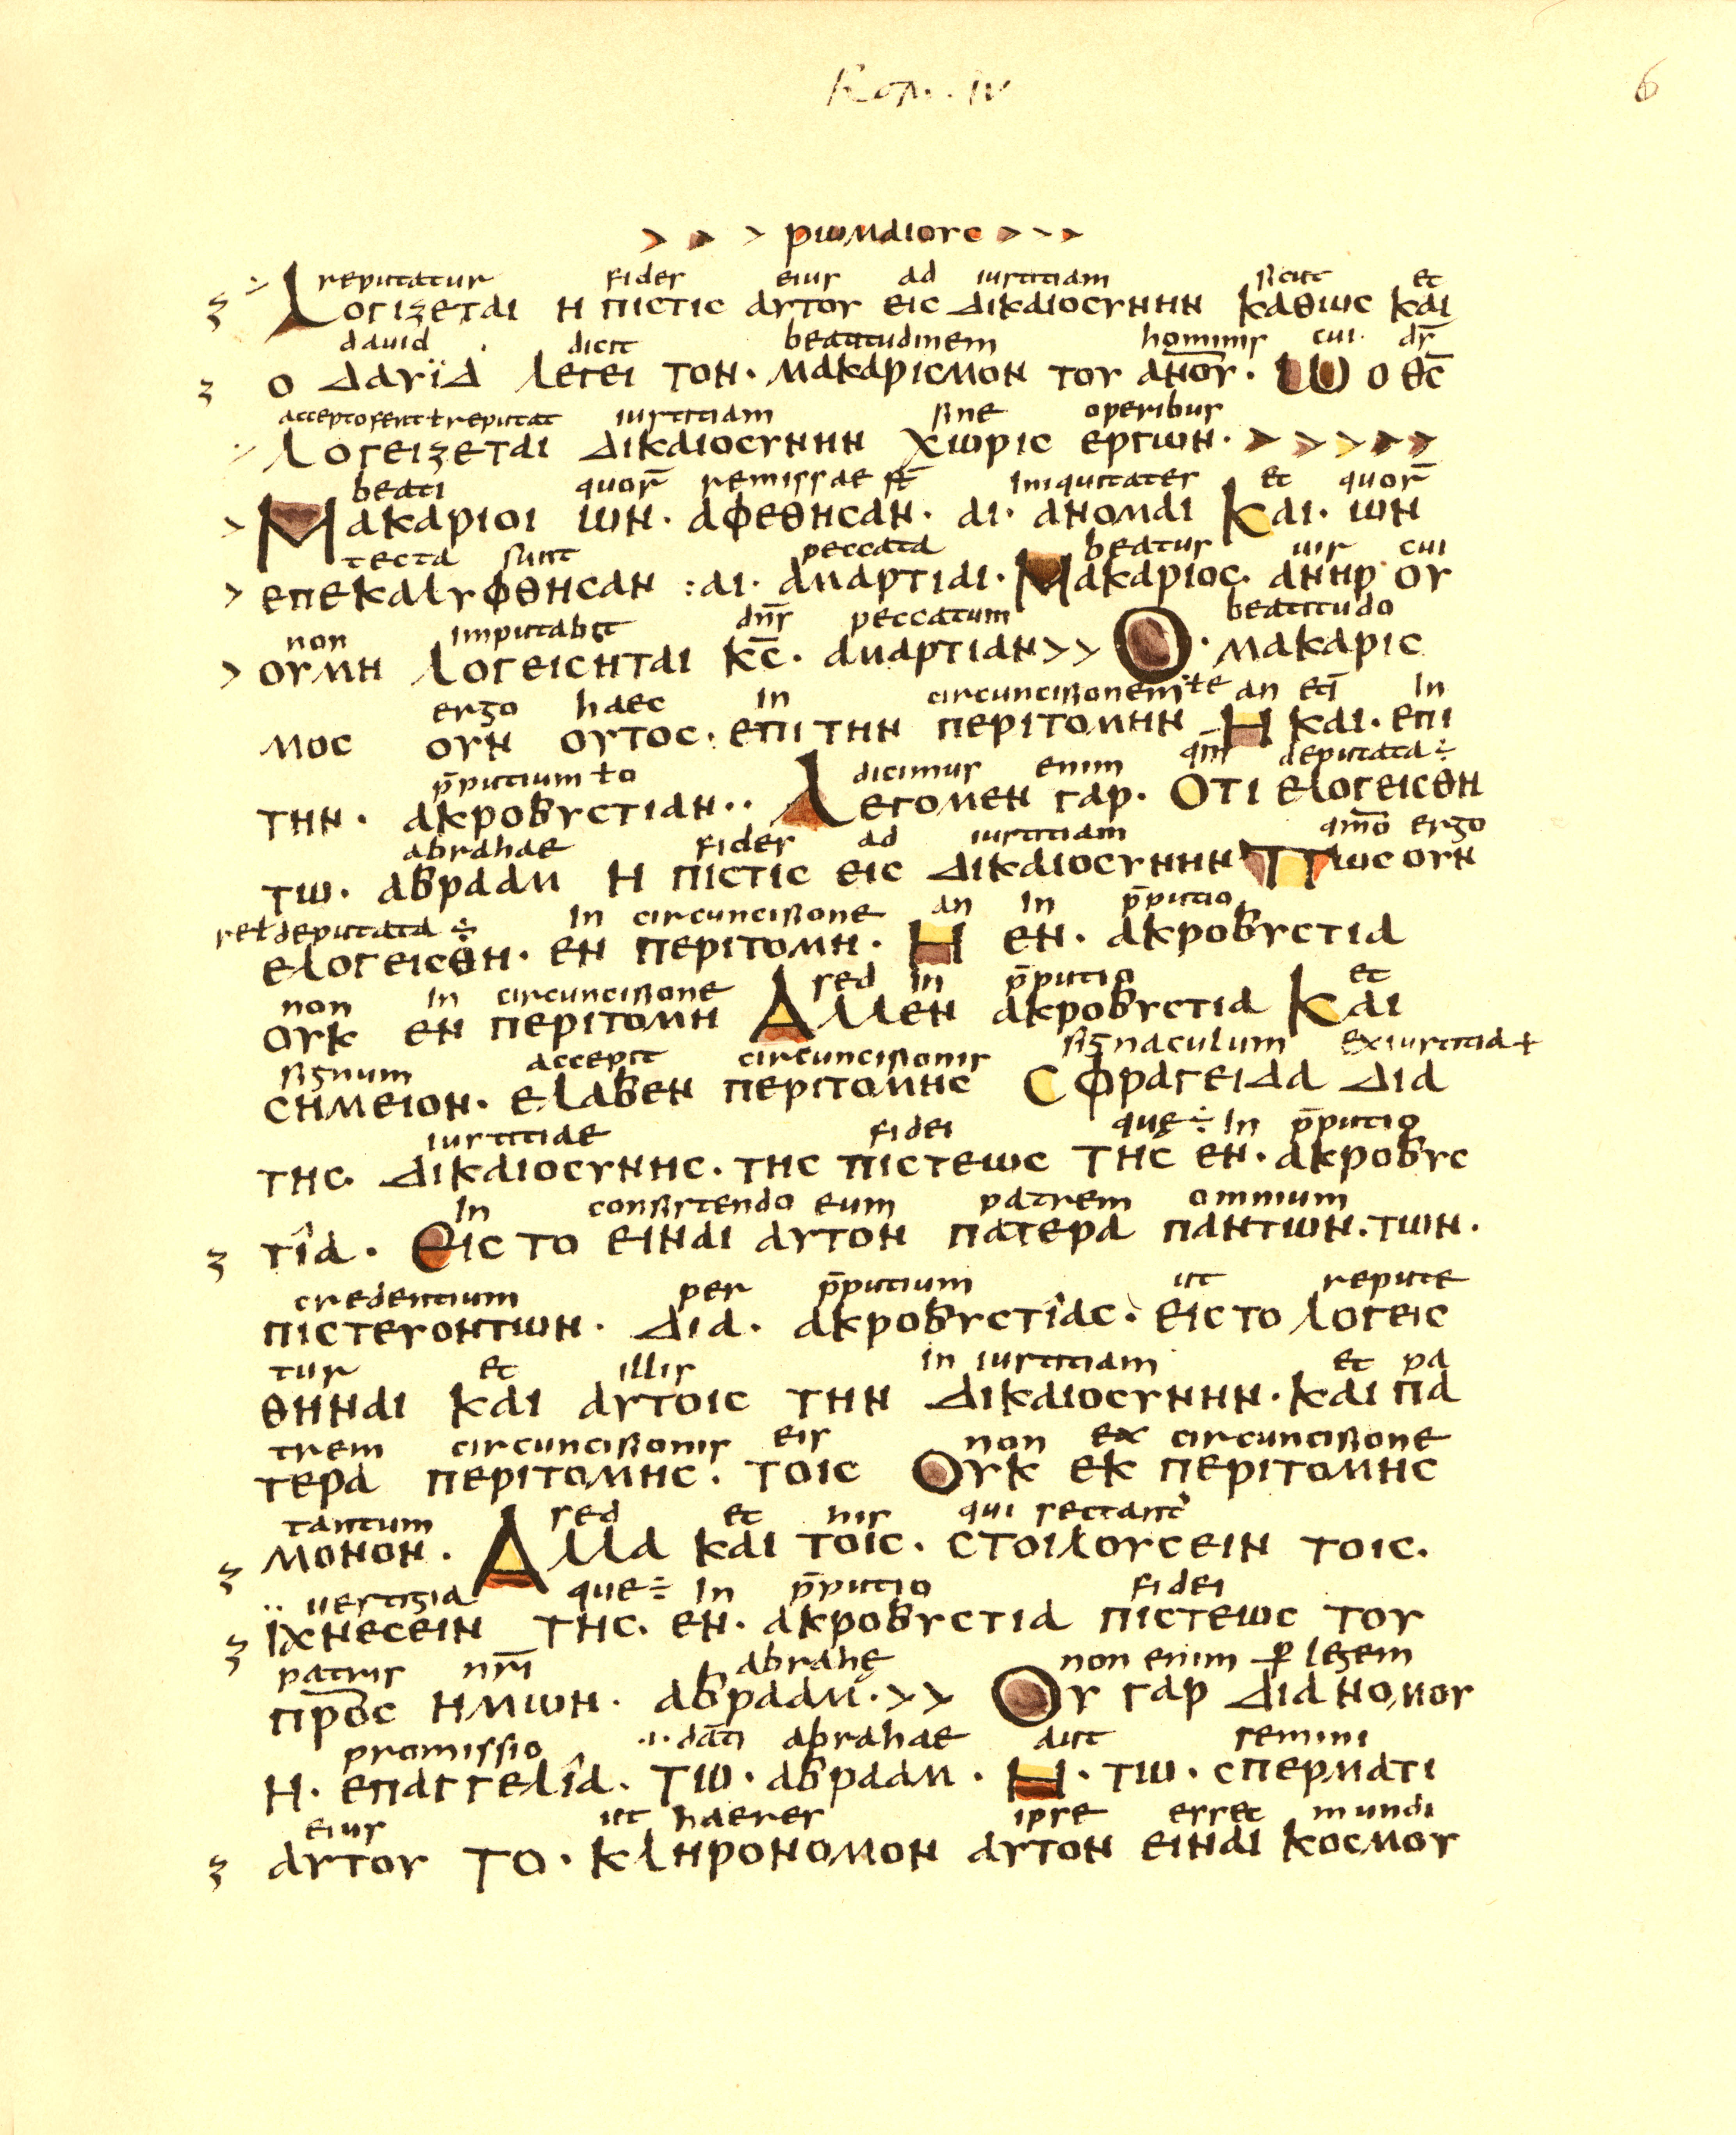 Rom. IV
6
ρωμαιους
reputatur fides eius ad iustitiam sicut et
Λογιζεται η πιστις αυτου εις δικαιοσυνην καθως και
dauid dicit beatitudinem hominis cui. ds̄
ο δαυϊδ λεγει τον· μακαρισμον του αν̅ο̅υ̅· ω ο θ̅ς̅
acceptofert ł reputat iustitiam sine operibus
λογειζεται δικαιοσυνην χωρις εργων·
beati quor̄ remissae st̄ iniquitates et quor̄
> Μακαριοι ων· αφεθησαν· αι· ανομαι και· ων
tecta sunt peccata beatus uir cui
> επεκαλυφθησαν :αι· αμαρτιαι· Μακαριος· ανηρ ου
non imputabit dn̄s peccatum beatitudo
> ουμη λογεισηται κ̅ς̅· αμαρτιαν>> Ο· μακαρις
ergo haec in circuncisionem ł te an etī in
μος ουν ουτος· επι την περιτομην Η και· επι
p̄putium ł o dicimus enim qm̄ deputata ÷
την· ακροβυστιαν·· Λεγομεν γαρ· Οτι ελογεισθη
abrahae fides ad iustitiam qm̄o ergo
τω· αβρααμ η πιστις εις δικαιοσυνην Πως ουν
deputata ÷ in circuncisione an in p̄putio
ελογεισθη· εν περιτομη· Η εν· ακροβυστια
non in circuncisione sed in p̄putio et
ουκ εν περιτομη Αλλεν ακροβυστια Και
signum accepit circuncisionis signaculum ex iustitia ł
σημειον· ελαβεν περιτομης Σφραγειδα δια
iustitiae fidei quę ÷ in p̄putio
της· δικαιοσυνης· της πιστεως της εν· ακροβυσ
in consistendo eum patrem omnium
τια· Εις το ειναι αυτον πατερα παντων· των·
credentium per p̄putium ut repute
πιστευοντων· δια· ακροβυστιας· εις το λογεις
tur et illis in iustitiam et pa
θηναι και αυτοις την δικαιοσυνην· και πα
trem circuncisionis eis non ex circuncisione
τερα περιτομης· τοις Ουκ εκ περιτομης
tantum sed et his qui sectant'
μονον· Αλλα και τοις· στοιλουσειν τοις·
uestigia que ÷ in p̄putio fidei
ιχνεσειν της· εν· ακροβυστια πιστεως του
patris nr̄i abrahę non enim p̱ legem
πρ̅ο̅ς ημων· αβρααμ·>> Ου γαρ δια νομου
promissio ·ı· datā abrahae aut semini
η· επαγγελια· τω· αβρααμ· Η· τω· σπερματι
eius ut haeres ipse esset mundi
αυτου το· κληρονομον αυτον ειναι κοσμου